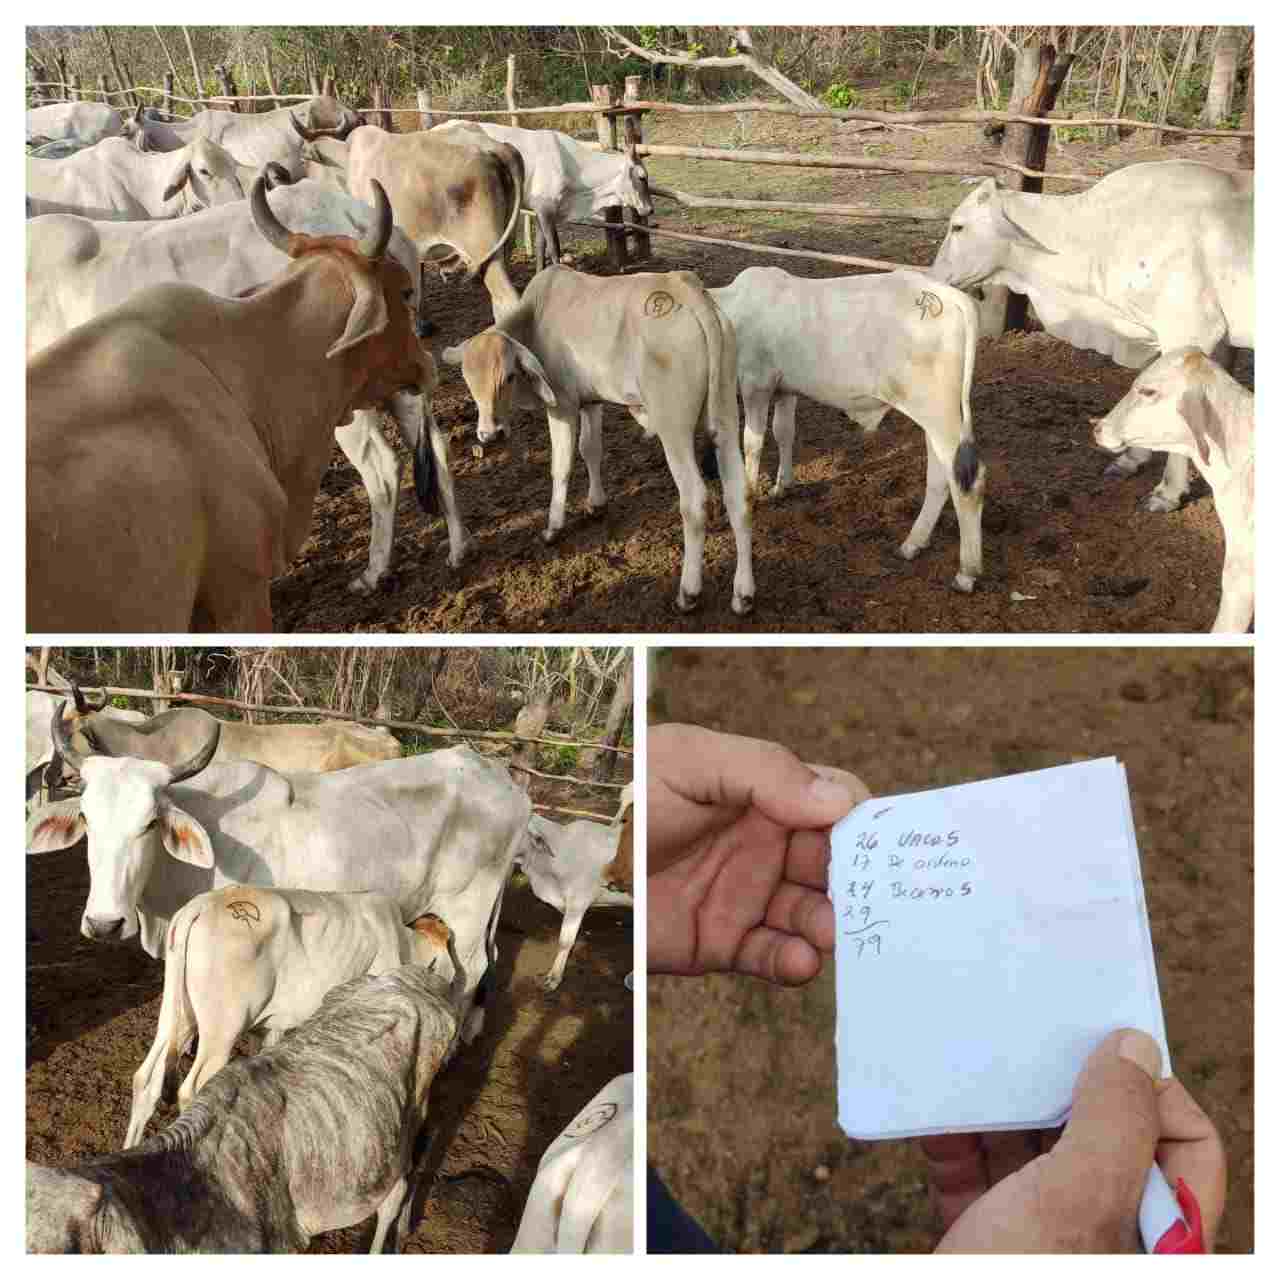 26 VACAS
17 De ordeno
24 Becerros
29
79